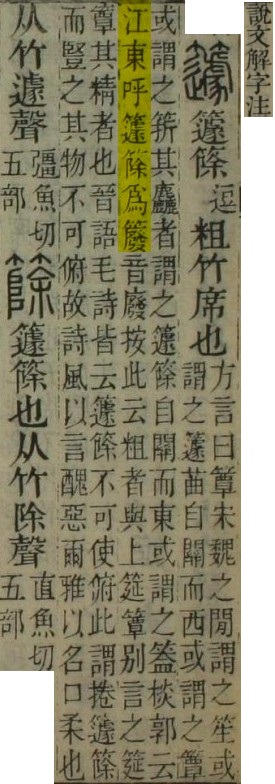 說文解字注
籧 籧篨逗粗竹席也方言曰簟宋魏之閒謂之笙或
謂之籧苖自關而西或謂之簟
或謂之其麤者謂之籧篨自關而東或謂之篕棪郭云
江東呼籧篨爲音廢按此云粗者與上筵簟别言之筵
簟其精者也晉語毛詩皆云籧篨不可使俯此謂捲籧篨
而豎之其物不可俯故詩風以言醜惡爾雅以名口柔也
从竹遽聲彊魚切五部 篨 籧篨也从竹除聲直魚切五部